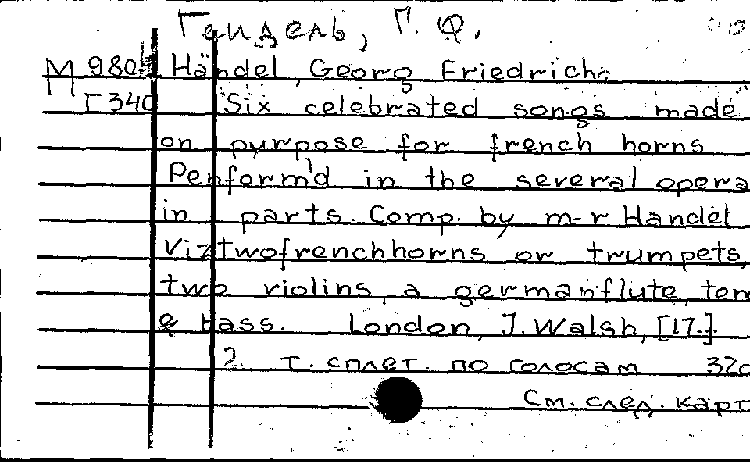 Гендель, Г. Ф.
М 980 Händel, Georg Friedrich.
Г 340 Six celebrated songs made
on purpose for french horns
Perform'd in the several opera
in parts. Comp. by m-r Handel
Viz two french horns or trumpets,
two violins, a german flute, ten
& bass. London, J. Walsh, [17.].
2 т. сплет. по голосам 32с
См. след. карт